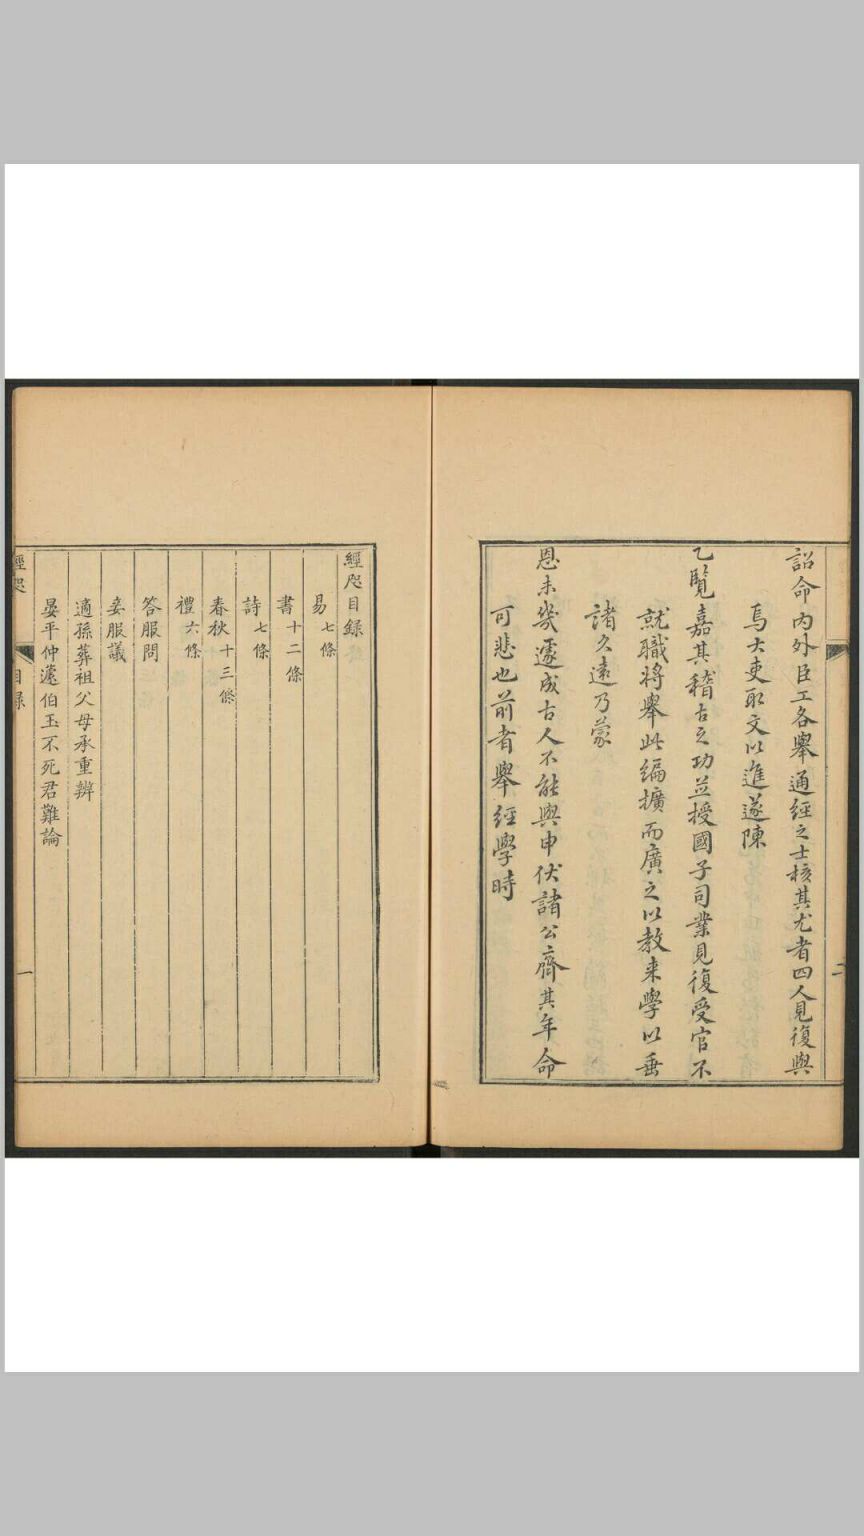 詔命內外臣工各舉通經之士核其尤者四人見復與
焉大吏取文以進遂陳
乙覽嘉其稽古之功並授國子司業見復受官不
就職將舉此編擴而廣之以教来學以垂
諸久遠乃蒙
恩未幾遽成古人不能與申伏諸公齊其年命
可悲也前者舉經學時
二
經咫目錄
易七條
書十二條
詩七條
春秋十三條
禮六條
答服問
妾服議
適孫葬祖父母承重辨
晏平仲蘧伯玉不死君難論
經咫
目錄
一